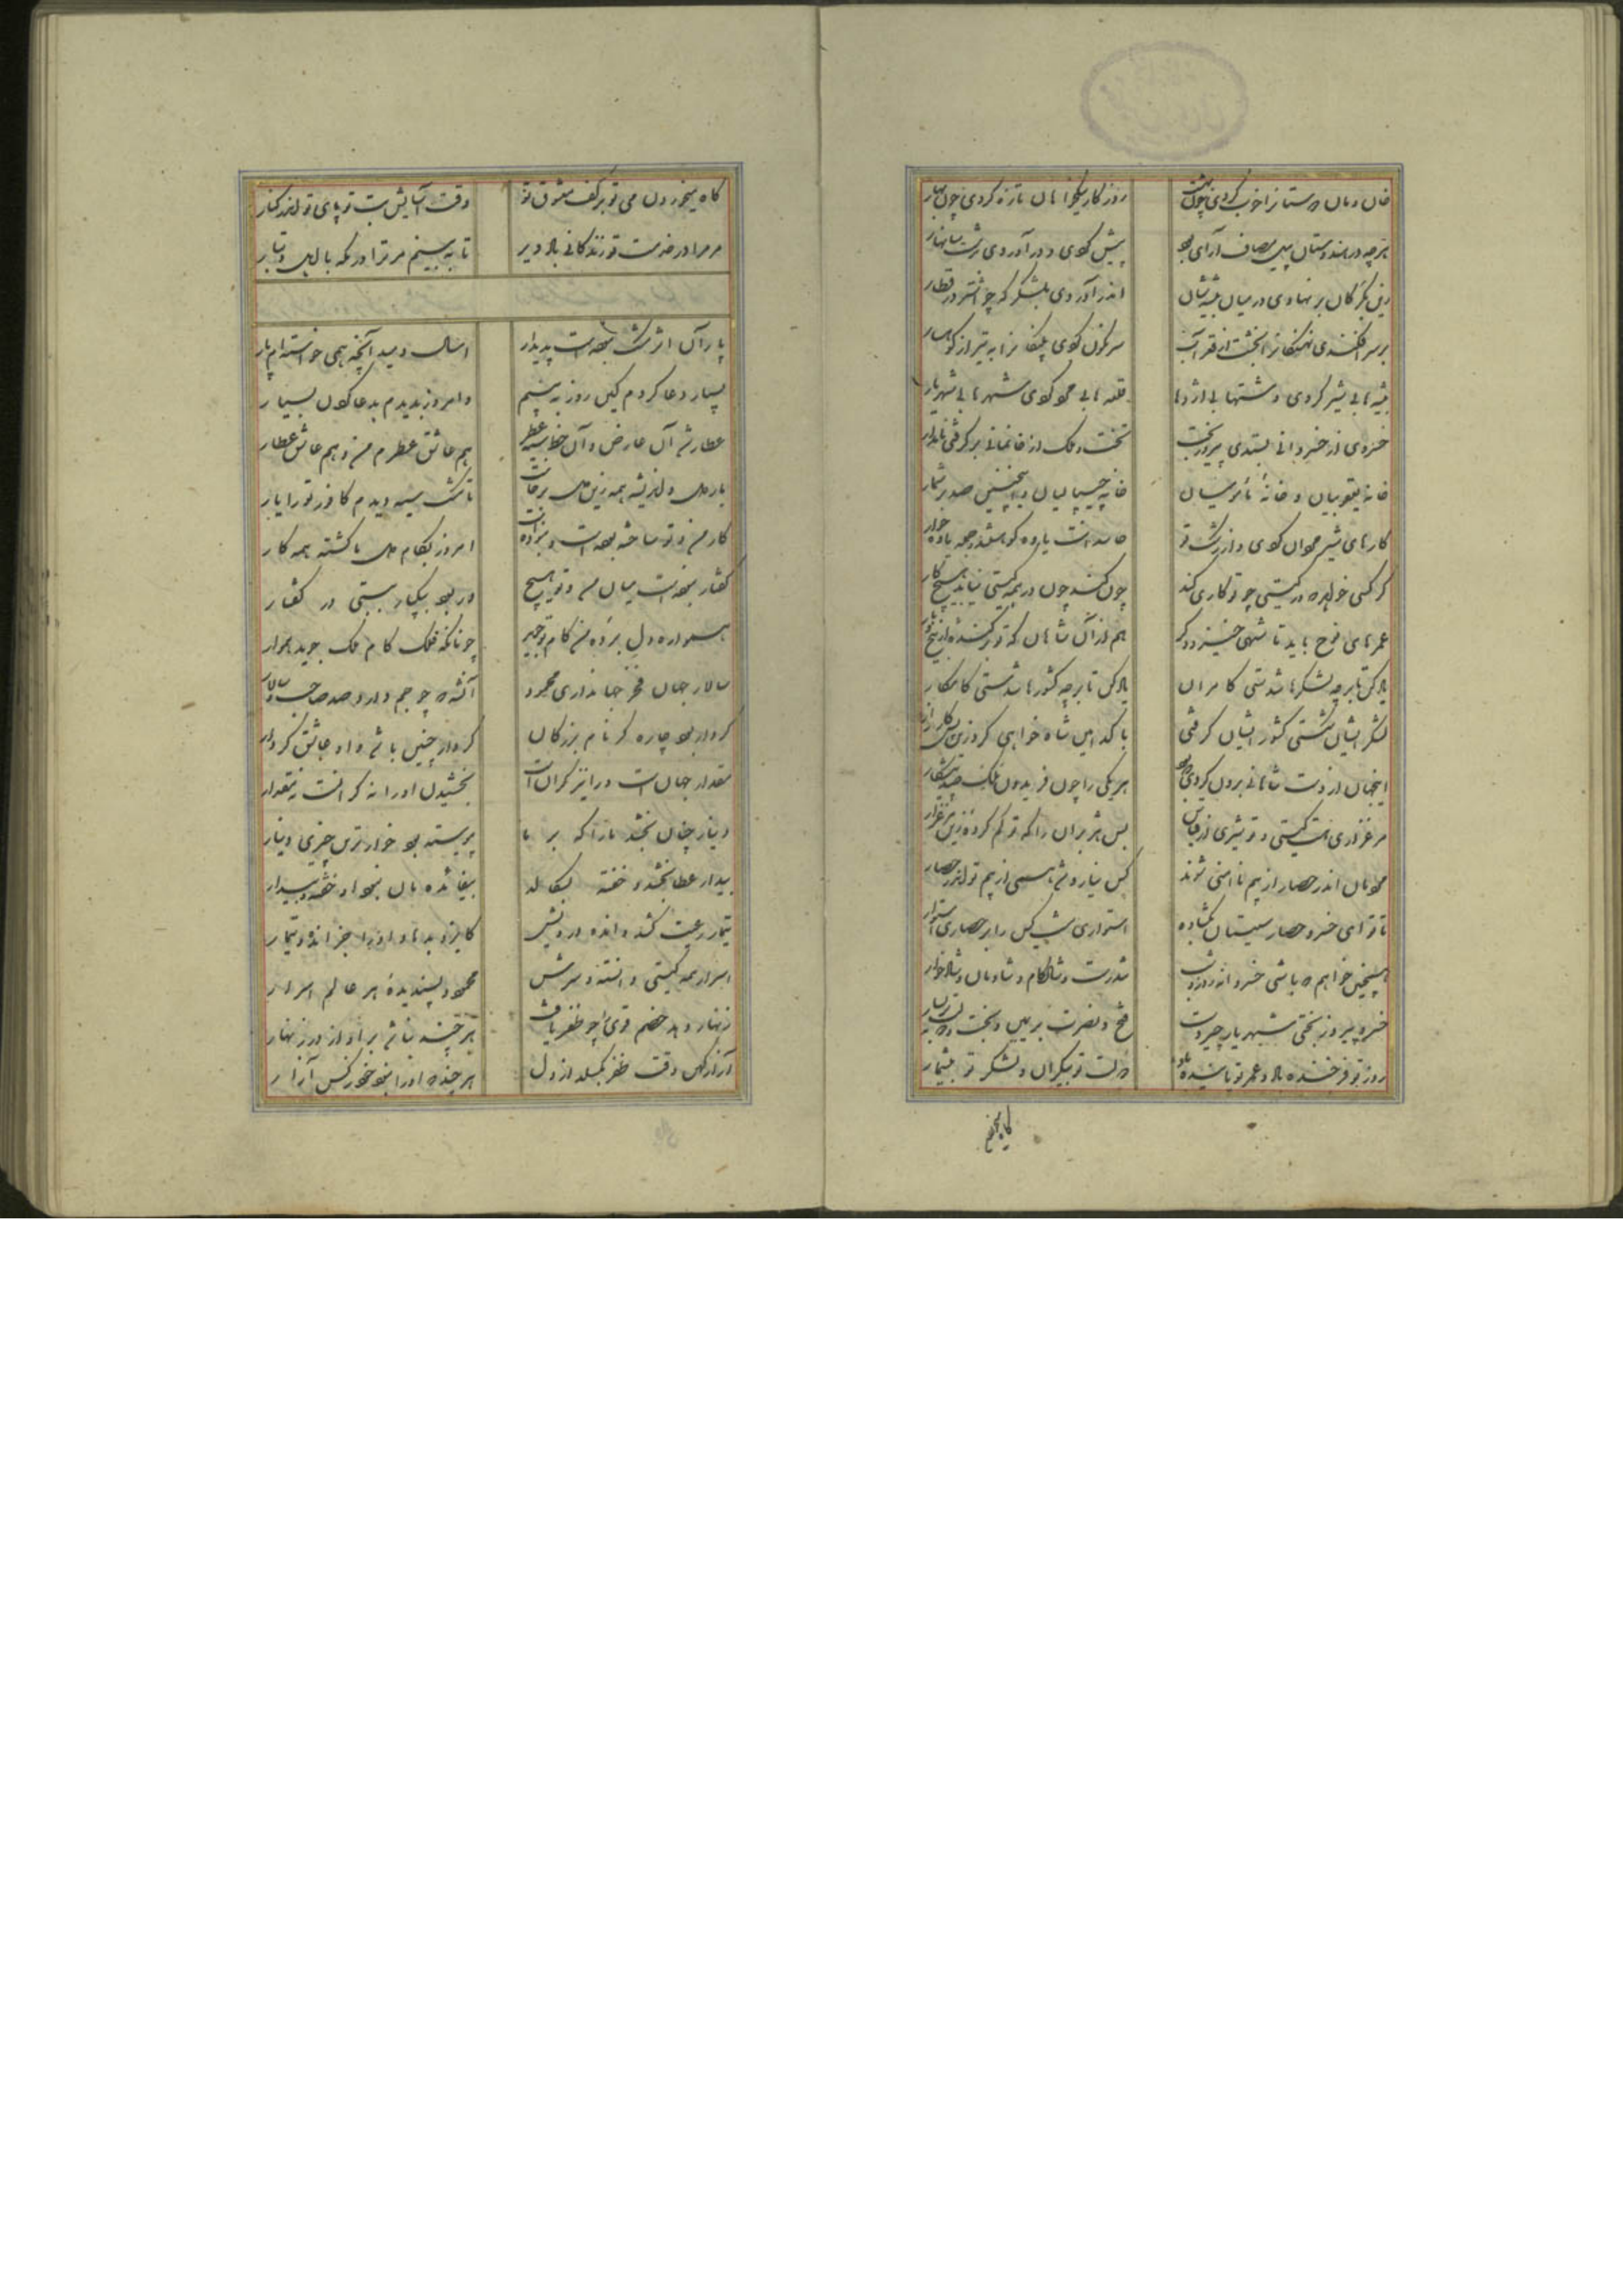 خان و مان دوستانرا خوب کردی چون بهشت
روزکار نیکخواهان تازه کردی چون بهار
هر چه در هندوستان پیل مصاف آرای بود
پیش کردی و در آوردی بدشت شابهار
زین بزرکان برنهادی در میان بیشه شان
اندر آوردی بلشکر که چو اشتر در قطار
بر سر افکندی نهنکانرا بخشت از قعر آب
سرنکون کردی پلنکانرا به تیر از کوهسار
بیشه ها بی شیر کردی و دشتها بی اژدها
قلعه ها بی مرد کردی شهرها بی شهریار
خسروی از خسروانی بستدی پیروزبخت
تخت و ملک از خانمانی برکرفتی نامدار
خانه یعقوبیان و خانهٔ مامونیان
خانه چیپالیان و همچنین صد بر شمار
کارهای شیرمردان کردی و از رشک تو
حاسدانت یاوه کو باشند و جمله بادخوار
کر کسی خواهد که در کیتی چو تو کاری کند
چون کند چون در همه کیتی نیابد هیچ کار
عمرهای نوح باید تا شهی خیزد دکر
هم از آن شاهان که تو برکنده از بیخ و بار
یاد کن تا بر چه لشکرها شدستی کامران
یاد کن تا بر چه کشورها شدستی کامکار
لشکر ایشان شکستی کشور ایشان کرفتی
با کدامین شاه خواهی کرد زین پس کارزار
اینجهان از دست شاهانی برون کردی که بود
هر یکی را چون فریدون ملک صد پیشکار
مرغزاری هست کیتی و تو شیری از قیاس
بس هژبران را که تو کم کرده زین مرغزار
مردمان اندر حصار از بیم نا امنی شوند
کس نیارد شد همی از بیم تو اندر حصار
تا تو ای خسرو حصار سیستان بکشاده
استواری نیست کس را بر حصاری استوار
همچنین خواهم که باشی خسروا در روز و شب
تندرست و شادکام و شادمان و شادخوار
خسرو پیروزبختی شهریار چیره دست
فتح و نصرت بر یمین و بخت و دولت بر یسار
روز تو فرخنده باد و عمر تو پاینده باد
دولت تو بیکران و لشکر تو بیشمار
کاه میخوردن
کاه میخوردن می تو بر کف معشوق تو
وقت آسایش بت تو پای تو اندر کنار
مر مرا در خدمت تو زندکانی باد دیر
تا به بینم مر ترا در مکه با اهل و تبار
پار آن اثر مشک نبوده است پدیدار
امسال دمید آنچه همی خواستم پار
بسیار دعا کردم کاین روز به بینم
و امروز بدیدم بدعا کردن بسیار
عطار شد آن عارض و آن خط سیه عطر
هم عاشق عطرم من و هم عاشق عطار
بار دل و اندیشه همه زین دل برخاست
تا مشک سیه دیدم کافور ترا بار
کار من و تو ساخته بوده است و نبوده است
امروز بکام دل ما کشته همه کار
کفتار نبوده است میان من و تو هیچ
ور بود بیکبار ببستی در کفتار
همواره دل برده من کام تو جوید
چونانکه فلک کام ملک جوید هموار
سالار جهان فخر جهانداری محمود
آن شه که چو جم دارد صد حاجب و سالار
کردار بود چاره کر نام بزرکان
کردار چنین باشد و او عاشق کردار
مقدار جهان است مر او را نیز کران است
بخشیدن او را نه کرانست نه مقدار
دینار چنان بخشد ما را که بر ما
پیوسته بود خوارترین چیزی دینار
بیدار عطا بخشد و خفته
بیفائده مان نبود او خفته و بیدار
تیمار رعیت کشد و انده درویش
کایزد بدهاد او را جز انده و تیمار
اسرار همه کیتی دانسته و سرش
محمود پسندیدهٔ هر عالم اسرار
زنهار دهد خصم قوی را چو ظفر یافت
هر چند نباشد بر او از در زنهار
آزار کس وقت ظفر بکسلد از دل
هر چند که او را نبود جز کس آزار